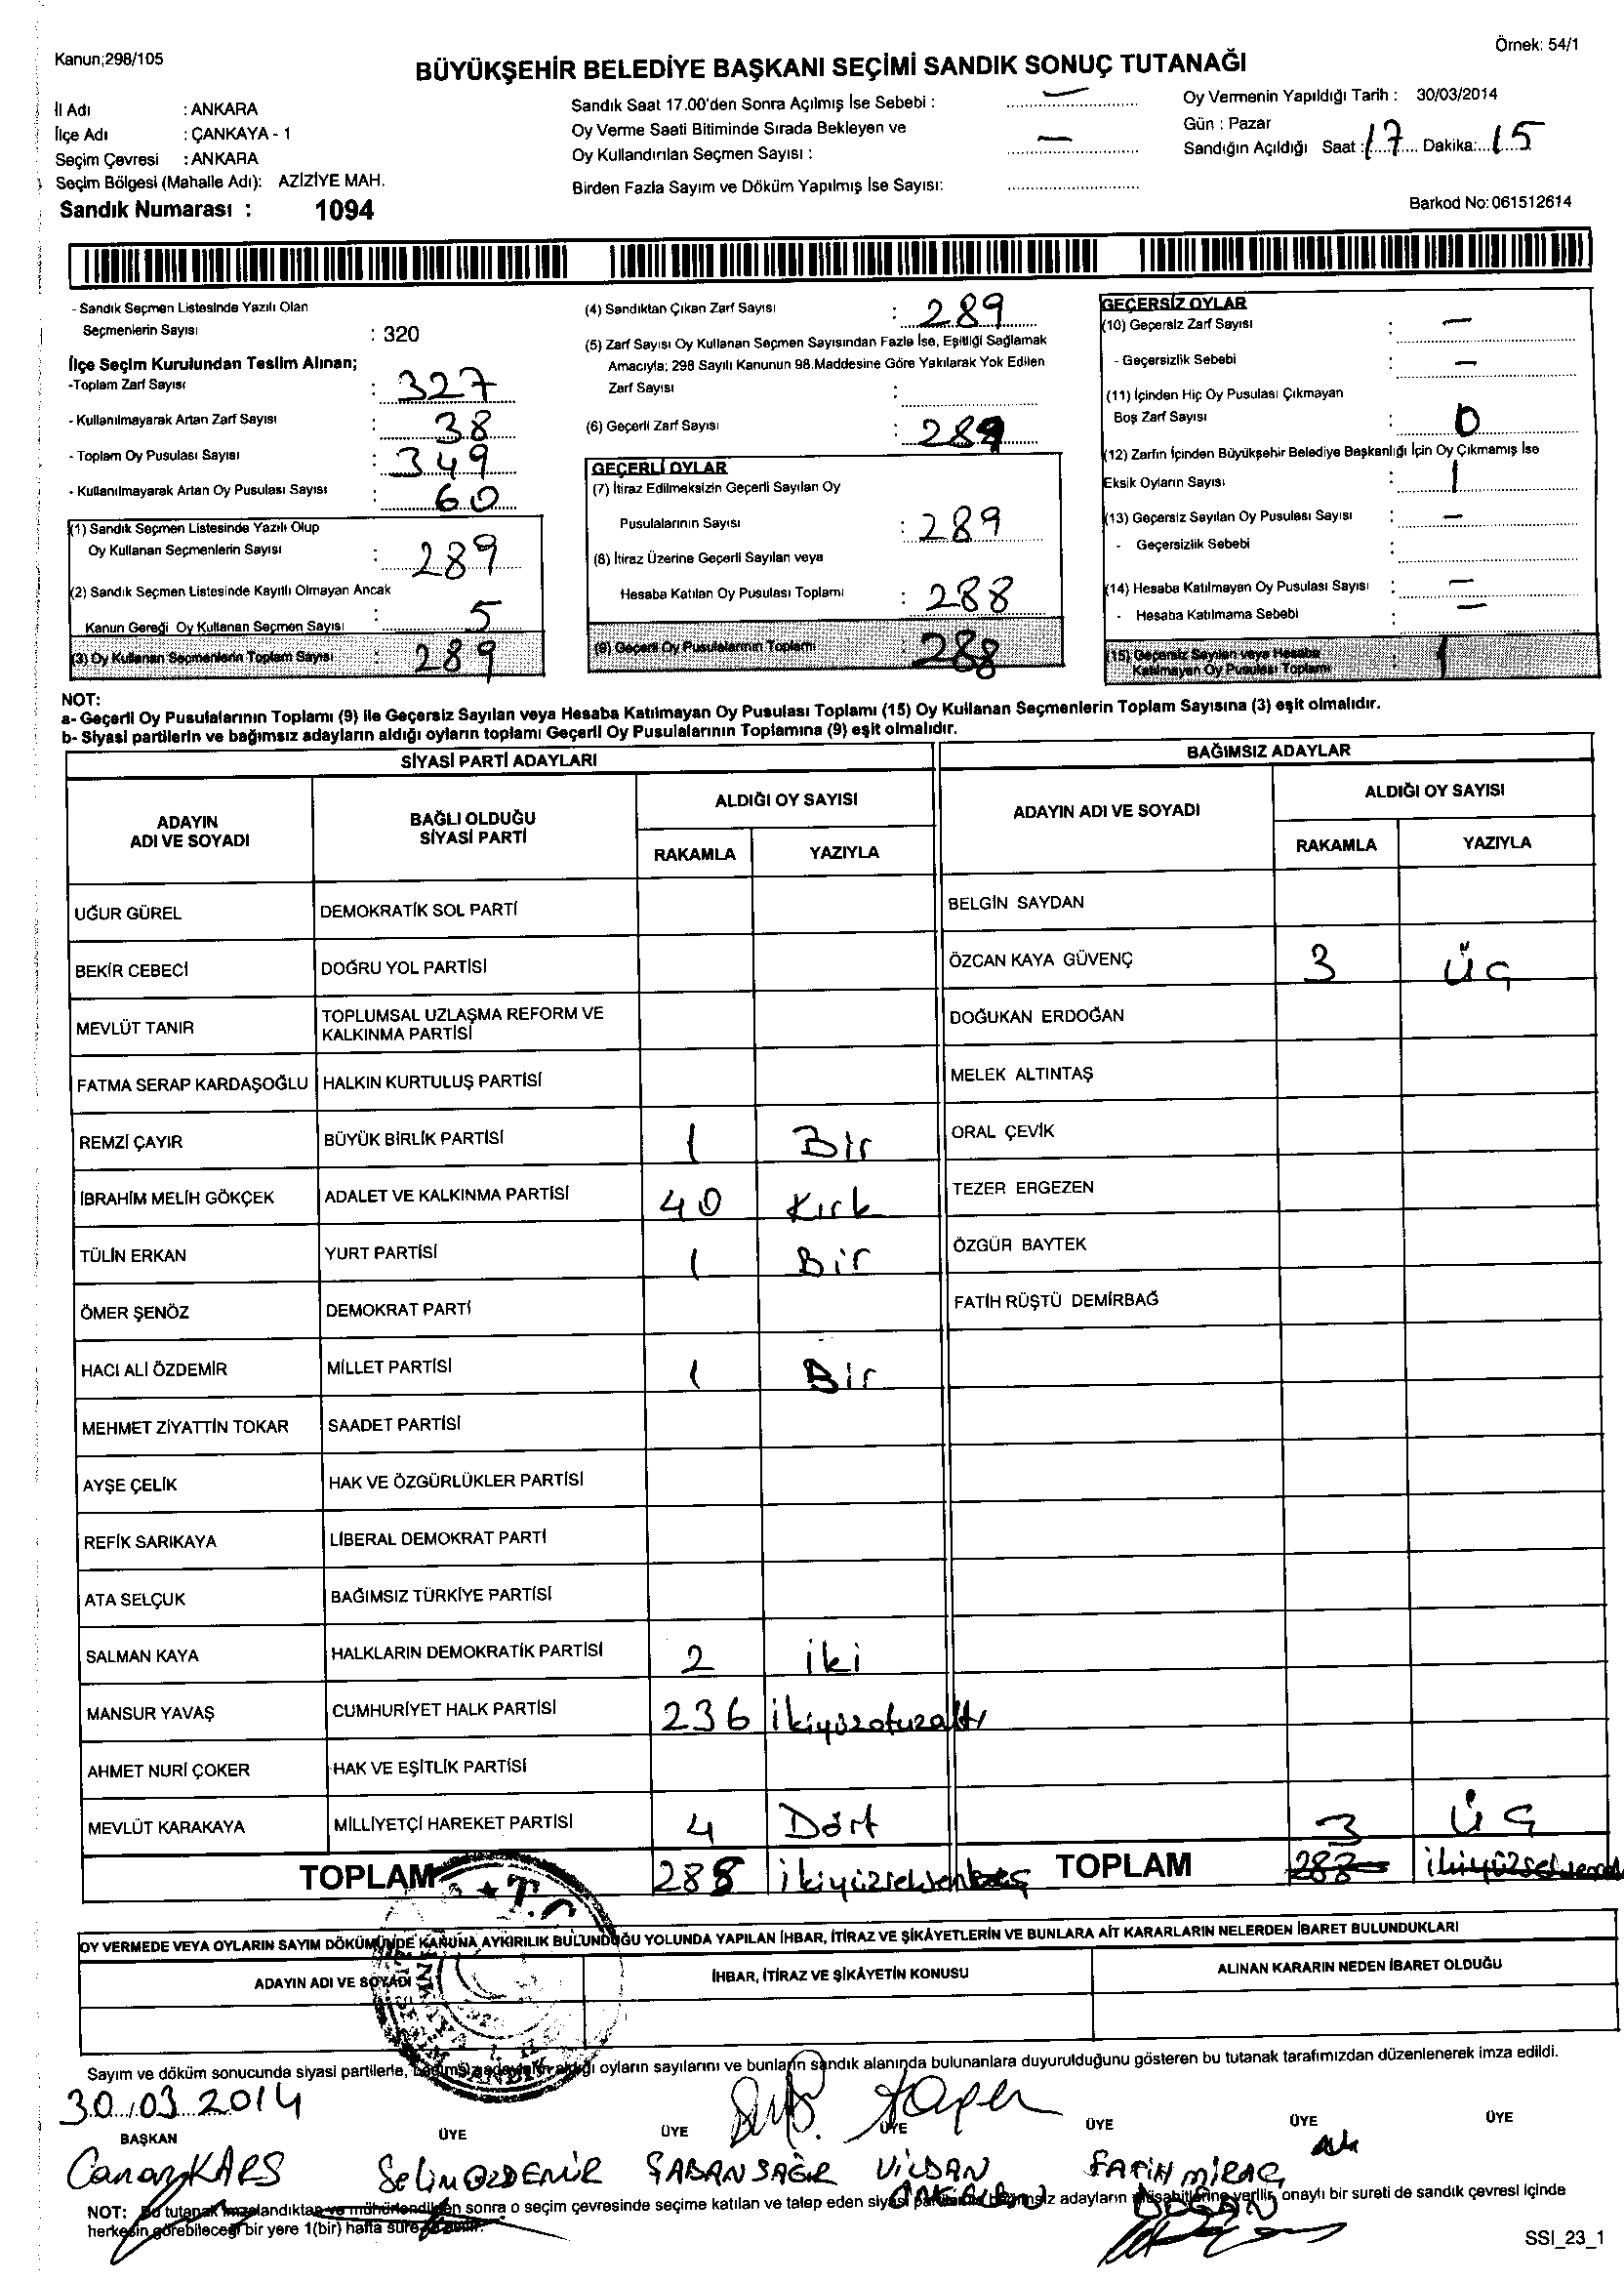 Kanun;298/105
Örnek: 54/1
BÜYÜKŞEHİR BELEDİYE BAŞKANI SEÇİMİ SANDIK SONUÇ TUTANAĞI
İl Adı : ANKARA
İlçe Adı : ÇANKAYA - 1
Seçim Çevresi : ANKARA
Seçim Bölgesi (Mahalle Adı): AZİZİYE MAH.
Sandık Numarası : 1094
Sandık Saat 17.00'den Sonra Açılmış İse Sebebi : —
Oy Verme Saati Bitiminde Sırada Bekleyen ve
Oy Kullandırılan Seçmen Sayısı : —
Birden Fazla Sayım ve Döküm Yapılmış İse Sayısı:
Oy Vermenin Yapıldığı Tarih : 30/03/2014
Gün : Pazar
Sandığın Açıldığı Saat : 17 Dakika: 15
Barkod No: 061512614
- Sandık Seçmen Listesinde Yazılı Olan
Seçmenlerin Sayısı : 320
İlçe Seçim Kurulundan Teslim Alınan;
-Toplam Zarf Sayısı : 327
- Kullanılmayarak Artan Zarf Sayısı : 38
- Toplam Oy Pusulası Sayısı : 349
- Kullanılmayarak Artan Oy Pusulası Sayısı : 60
(1) Sandık Seçmen Listesinde Yazılı Olup
Oy Kullanan Seçmenlerin Sayısı : 289
(2) Sandık Seçmen Listesinde Kayıtlı Olmayan Ancak
Kanun Gereği Oy Kullanan Seçmen Sayısı : 5
(3) Oy Kullanan Seçmenlerin Toplam Sayısı : 289
(4) Sandıktan Çıkan Zarf Sayısı : 289
(5) Zarf Sayısı Oy Kullanan Seçmen Sayısından Fazla İse, Eşitliği Sağlamak
Amacıyla; 298 Sayılı Kanunun 98.Maddesine Göre Yakılarak Yok Edilen
Zarf Sayısı :
(6) Geçerli Zarf Sayısı : 289
GEÇERLİ OYLAR
(7) İtiraz Edilmeksizin Geçerli Sayılan Oy
Pusulalarının Sayısı : 289
(8) İtiraz Üzerine Geçerli Sayılan veya
Hesaba Katılan Oy Pusulası Toplamı : 288
(9) Geçerli Oy Pusulalarının Toplamı : 288
GEÇERSİZ OYLAR
(10) Geçersiz Zarf Sayısı : —
- Geçersizlik Sebebi : —
(11) İçinden Hiç Oy Pusulası Çıkmayan
Boş Zarf Sayısı : 0
(12) Zarfın İçinden Büyükşehir Belediye Başkanlığı İçin Oy Çıkmamış İse
Eksik Oyların Sayısı : 1
(13) Geçersiz Sayılan Oy Pusulası Sayısı : —
- Geçersizlik Sebebi :
(14) Hesaba Katılmayan Oy Pusulası Sayısı : —
- Hesaba Katılmama Sebebi : —
(15) Geçersiz Sayılan veya Hesaba
Katılmayan Oy Pusulası Toplamı : 1
NOT:
a- Geçerli Oy Pusulalarının Toplamı (9) ile Geçersiz Sayılan veya Hesaba Katılmayan Oy Pusulası Toplamı (15) Oy Kullanan Seçmenlerin Toplam Sayısına (3) eşit olmalıdır.
b- Siyasi partilerin ve bağımsız adayların aldığı oyların toplamı Geçerli Oy Pusulalarının Toplamına (9) eşit olmalıdır.
SİYASİ PARTİ ADAYLARI
ADAYIN ADI VE SOYADI
BAĞLI OLDUĞU SİYASİ PARTİ
ALDIĞI OY SAYISI
RAKAMLA YAZIYLA
UĞUR GÜREL DEMOKRATİK SOL PARTİ
BEKİR CEBECİ DOĞRU YOL PARTİSİ
MEVLÜT TANIR TOPLUMSAL UZLAŞMA REFORM VE
KALKINMA PARTİSİ
FATMA SERAP KARDAŞOĞLU HALKIN KURTULUŞ PARTİSİ
REMZİ ÇAYIR BÜYÜK BİRLİK PARTİSİ 1 Bir
İBRAHİM MELİH GÖKÇEK ADALET VE KALKINMA PARTİSİ 40 Kırk
TÜLİN ERKAN YURT PARTİSİ 1 Bir
ÖMER ŞENÖZ DEMOKRAT PARTİ
HACI ALİ ÖZDEMİR MİLLET PARTİSİ 1 Bir
MEHMET ZİYATTİN TOKAR SAADET PARTİSİ
AYŞE ÇELİK HAK VE ÖZGÜRLÜKLER PARTİSİ
REFİK SARIKAYA LİBERAL DEMOKRAT PARTİ
ATA SELÇUK BAĞIMSIZ TÜRKİYE PARTİSİ
SALMAN KAYA HALKLARIN DEMOKRATİK PARTİSİ 2 iki
MANSUR YAVAŞ CUMHURİYET HALK PARTİSİ 236 ikiyüzotuzaltı
AHMET NURİ ÇOKER HAK VE EŞİTLİK PARTİSİ
MEVLÜT KARAKAYA MİLLİYETÇİ HAREKET PARTİSİ 4 Dört
TOPLAM 288
BAĞIMSIZ ADAYLAR
ADAYIN ADI VE SOYADI
ALDIĞI OY SAYISI
RAKAMLA YAZIYLA
BELGİN SAYDAN
ÖZCAN KAYA GÜVENÇ 3 Üç
DOĞUKAN ERDOĞAN
MELEK ALTINTAŞ
ORAL ÇEVİK
TEZER ERGEZEN
ÖZGÜR BAYTEK
FATİH RÜŞTÜ DEMİRBAĞ
3 Üç
TOPLAM 288
OY VERMEDE VEYA OYLARIN SAYIM DÖKÜMÜNDE KANUNA AYKIRILIK BULUNDUĞU YOLUNDA YAPILAN İHBAR, İTİRAZ VE ŞİKÂYETLERİN VE BUNLARA AİT KARARLARIN NELERDEN İBARET BULUNDUKLARI
ADAYIN ADI VE SOYADI İHBAR, İTİRAZ VE ŞİKÂYETİN KONUSU ALINAN KARARIN NEDEN İBARET OLDUĞU
Sayım ve döküm sonucunda siyasi partilerle, bağımsız adayların aldığı oyların sayılarını ve bunların sandık alanında bulunanlara duyurulduğunu gösteren bu tutanak tarafımızdan düzenlenerek imza edildi.
30.03.2014
BAŞKAN ÜYE ÜYE ÜYE ÜYE ÜYE ÜYE
Canay KARS Selin ÖZDEMİR ŞABAN SAĞIR VİLDAN FATİH MİRAÇ
DOĞAN
NOT: Bu tutanak imzalandıktan ve mühürlendikten sonra o seçim çevresinde seçime katılan ve talep eden siyasi partilerle bağımsız adayların müşahitlerine verilir, onaylı bir sureti de sandık çevresi içinde
herkesin görebileceği bir yere 1(bir) hafta süre
SSI_23_1